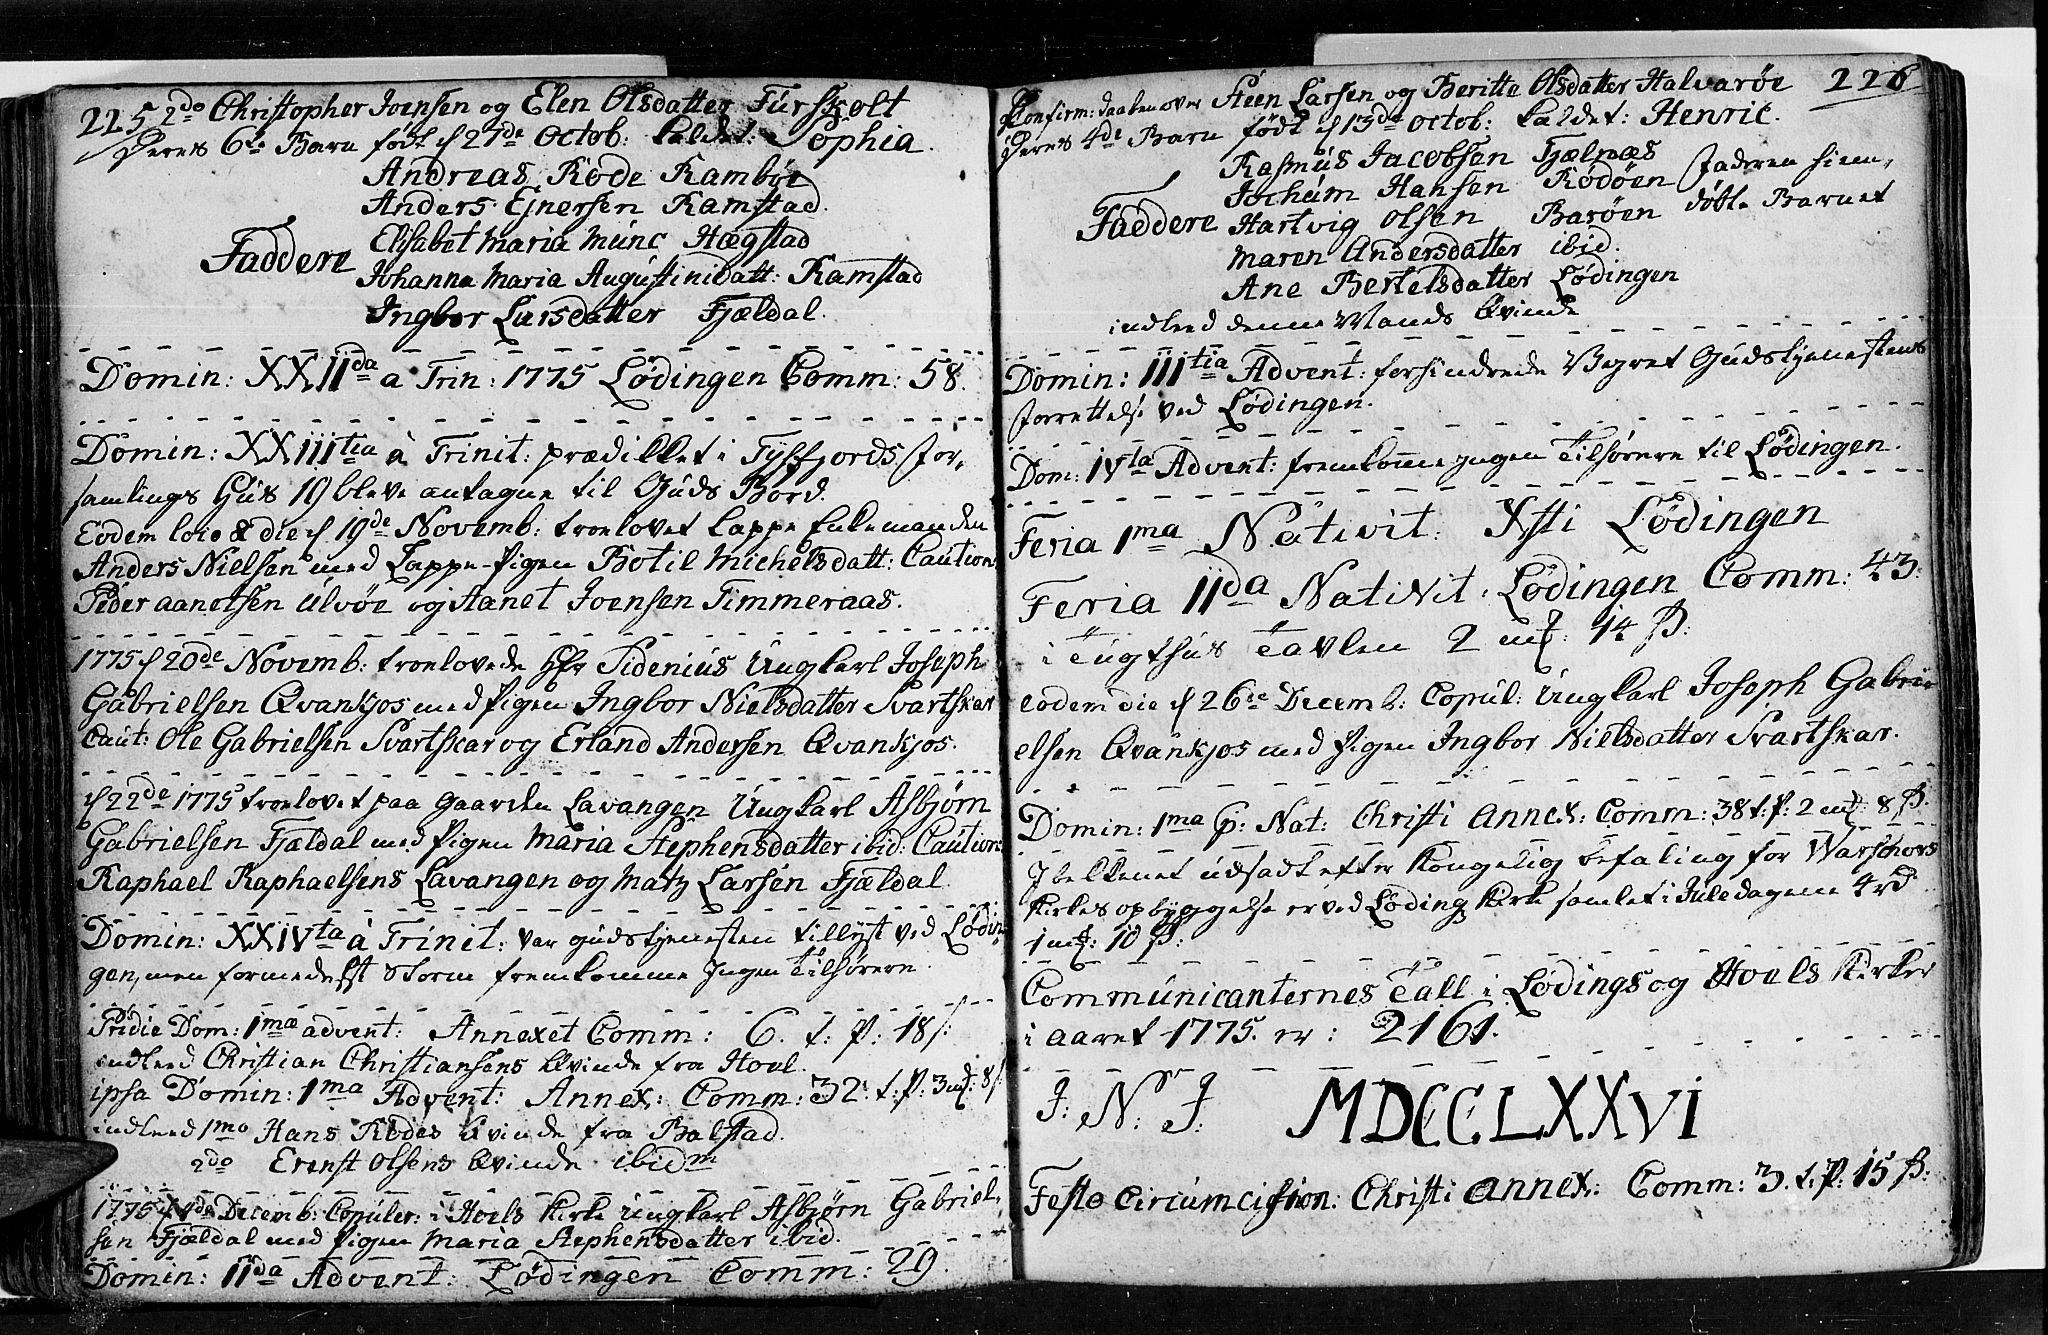 225 2do Christopher Joensen og Elen Olsdatter Furskolt
Deres 6te Barn født d 27de Octob: kaldet: Sophia.
Andreas Röde Rambøe
Anders Ejnersen Kamstad.
Faddere Elisabet Maria Munc Hægstad
Johanna Maria Augustinidatt: Kamstad
Ingbor Larsdatter Fjældal.
Domin: XXIIda a Trin: 1775 Lødingen Comm: 58.
Domin: XXIIItia à Trinit: prædikket i Tysfjords for,
samlings Hus 19 bleve antagne til Guds Bord.
Eodem loco & die d 19de Novemb: troelovet Lappe Enkemanden
Anders Nielsen med Lappe-Pigen Botil Michelsdatt: Caution:
Peder Aanotsen Ulvøe og Aanet Joensen Timmeraas.
1775 d 20de Novemb: troelovede Hr Sidenius Ungkarl Joseph
Gabrielsen Qvankjos med Pigen Ingbor Nielsdatter Svartskar
Caut: Ole Gabrielsen Svartskar og Erland Andersen Qvankjos.
d 22de 1775 troelovet paa Gaarden Lavangen Ungkarl Asbjørn
Gabrielsen Fjældal med Pigen Maria Stephensdatter ibid: Caution:
Raphael Raphaelsens Lavangen og Matz Larsen Fjældal.
Domin: XXIVta à Trinit: var gudstjenesten tillyst ved Lødin
gen, men formedelst Storm fremkomme Ingen Tilhørere.
Pridie Dom: 1ma advent: Annexet Comm: 6. t. P: 18 s:
indleed Christian Christiansens Qvinde fra Hool.
ipsa Domin: 1ma Advent: Annex: Comm: 32: t: P: 3 m: 8 s
indleed 1mo Hans Rödes Qvinde fra Balstad.
2do Ernst Olsens Qvinde ibidm
1775 d Decemb: Copuler: i Hoels Kirke Ungkarl Asbjørn Gabriel,
sen Fjældal med Pigen Maria Stephensdatter ibid.
Domin: IIda Advent: Lødingen Comm: 29.
Confirm: daaben over Steen Larsen og Beritte Olsdatter Halvarøe 226
Deres 4de Barn født d 13de Octob: kaldet: Henric.
Rasmus Jacobsen Fjælnæs
Jochum Hansen Rödöen Faderen hiem,
Faddere Hartvig Olsen Barøen døbte Barnet
Maren Andersdatter ibid:
Ane Bertelsdatter Lødingen
indleed denne Mands Qvinde
Domin: IIItia Advent: forhindrede Veyret Gudstjenestens
forrettelse ved Lødingen.
Dom: IVta Advent: fremkomme Ingen Tilhørere til Lødingen.
Feria 1ma Nativit: Xsti Lødingen
Feria IIda Nativit: Lødingen Comm: 43:
i Tugthus Tavlen 2 m: 14 s:
eodem die d 26de Decemb: Copul: Ungkarl Joseph Gabri
elsen Qvankjos med Pigen Ingbor Nielsdatter Svartskar.
Domin: 1ma p: Nat: Christi Annex: Comm: 38 t: P: 2 m: 8 s.
I bekkenet udsadt efter Kongelig befaling for Warschovs
Kirkes opbyggelse er ved Løding Kirke samlet i Juledagene 4 rd
1 m: 10 s:
Communicanternes Tall i Lødings og Hoels Kirker
i aaret 1775. er: 2161.
J: N: J: MDCCLXXVI
Festo Circumcision: Christi Annex: Comm: 3. t: P: 15 s: